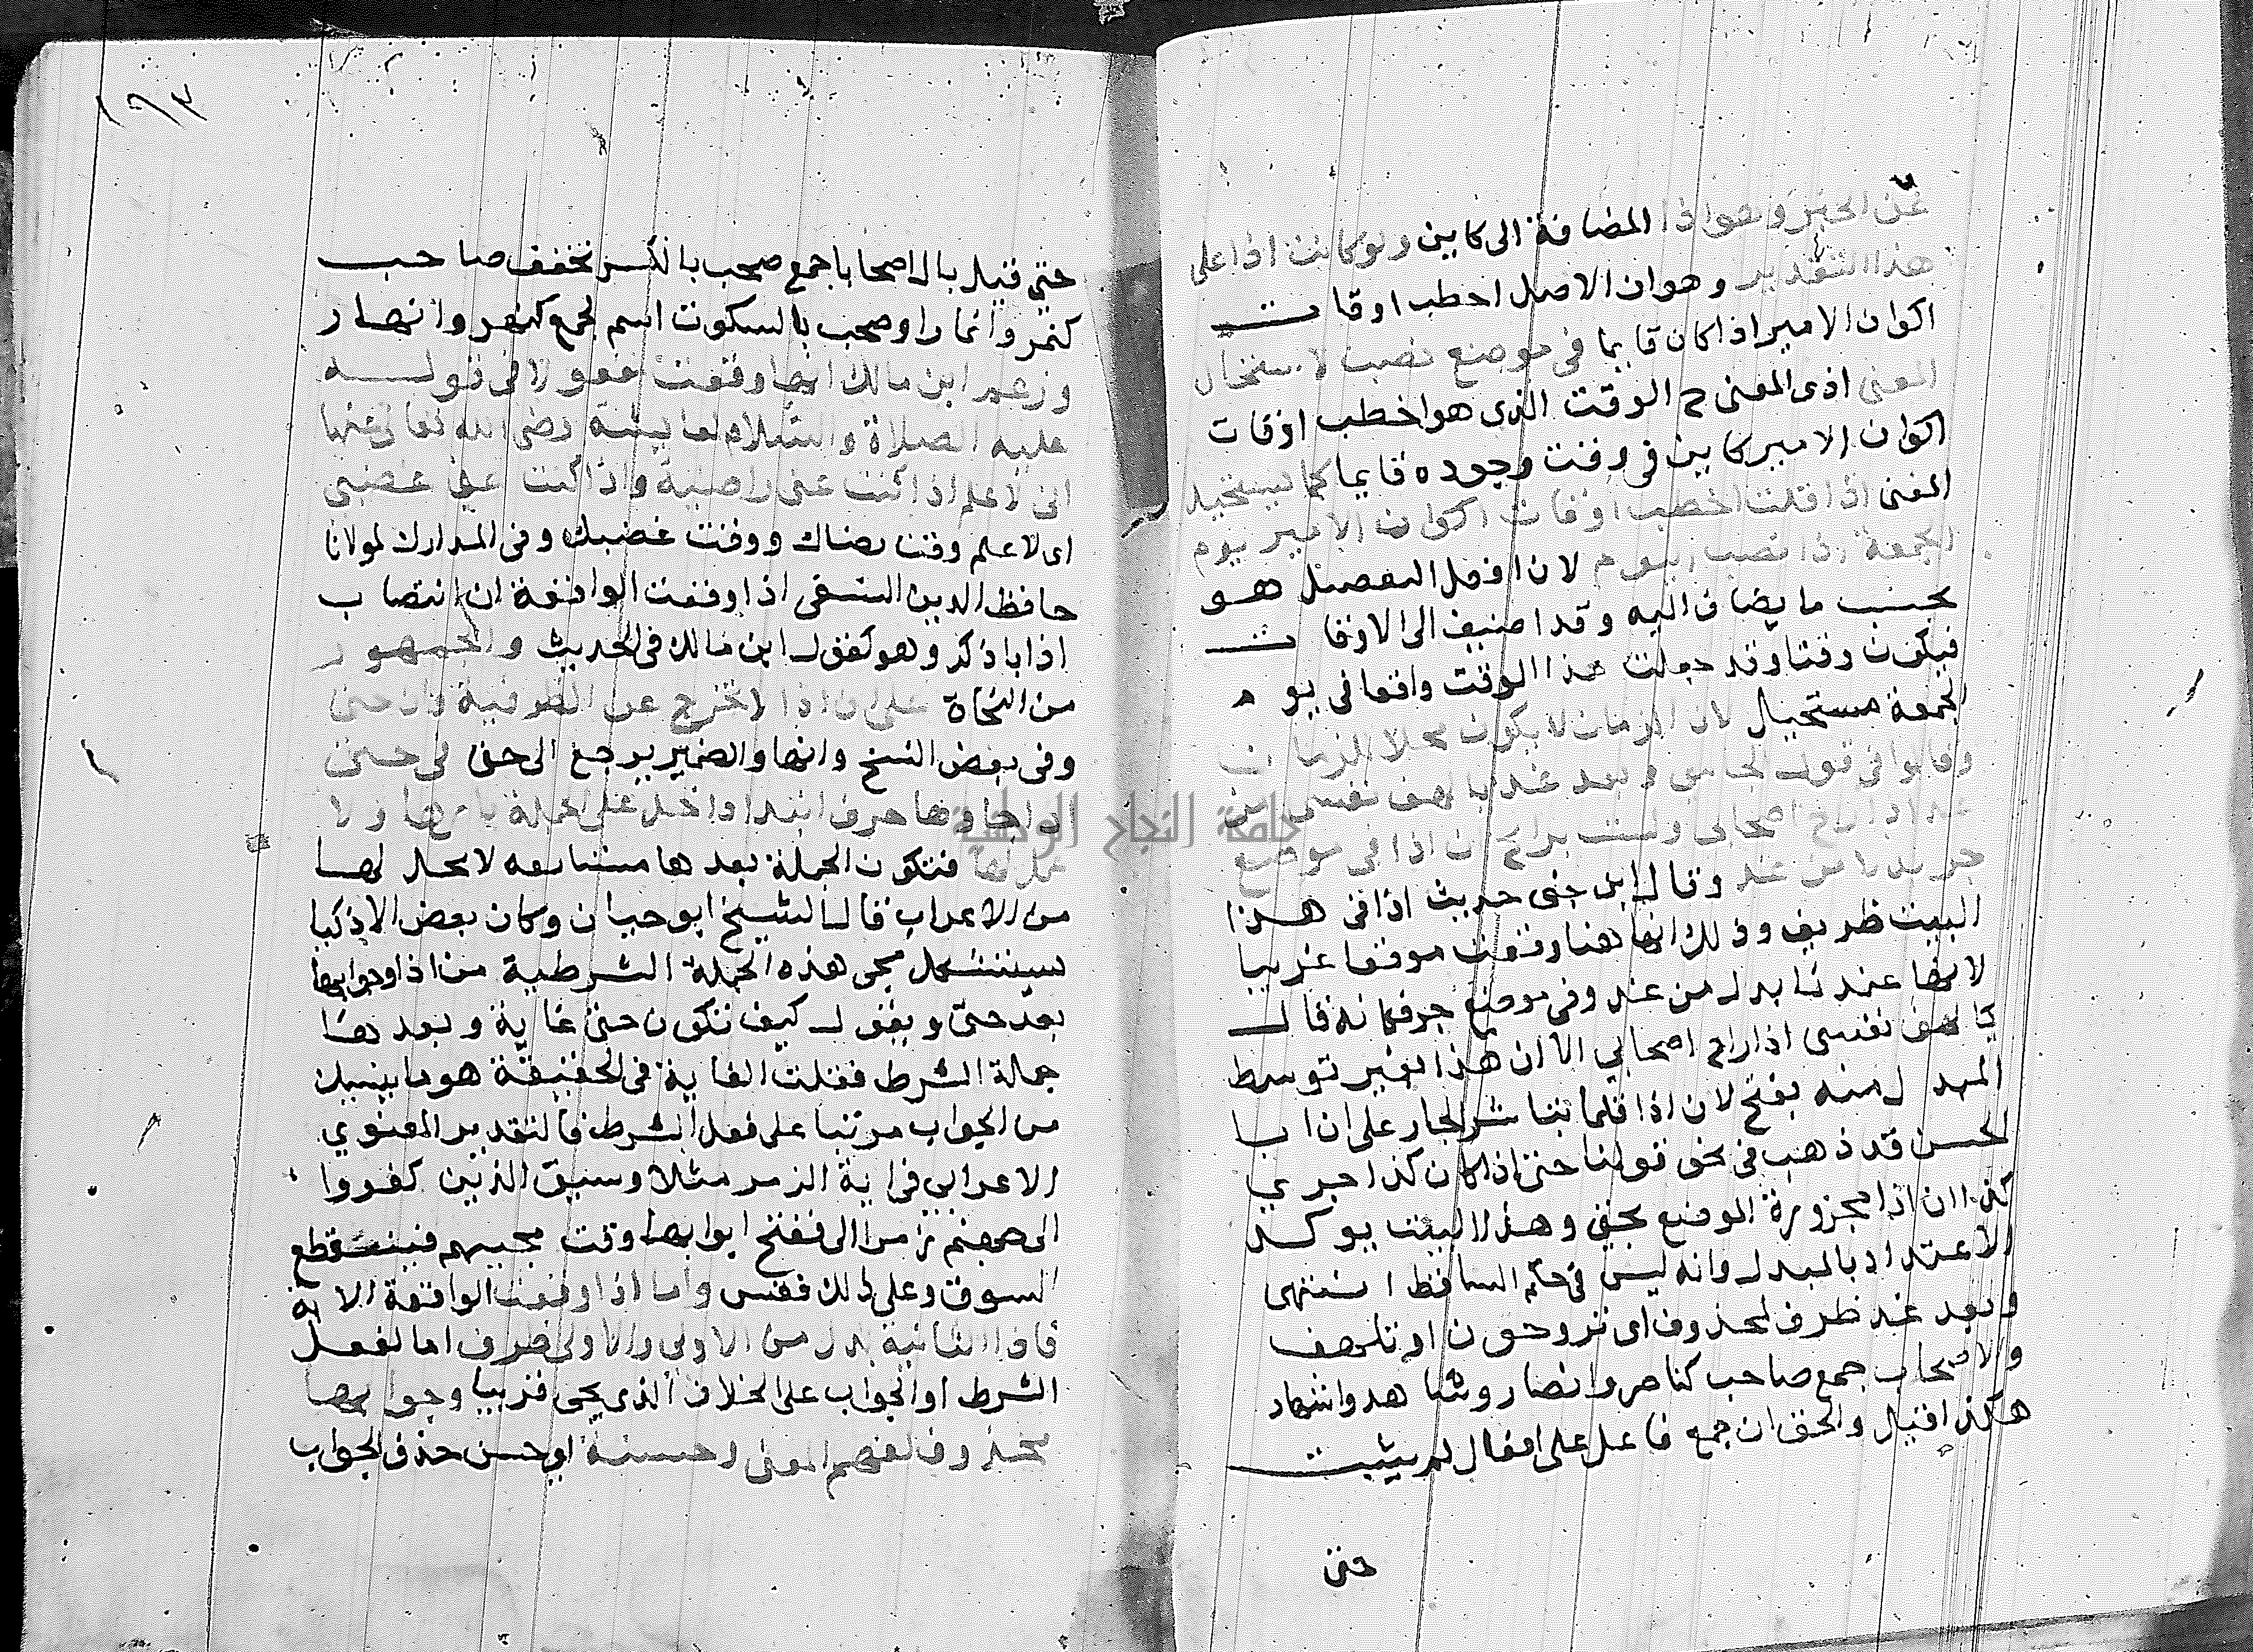 عن الخبر وهو اذا المضافة الى كاين ولو كانت اذا على
هذا التقدير وهو ان الاصل اخطب اوقات
اكوان الامير اذا كان قايما في موضع نصب لاستحال
المعنى اذى المعنى ح الوقت الذى هو اخطب اوقات
اكوان الامير كاين في وقت وجوده قايما كما يستحيل
المعنى اذا قلت اخطب اوقات اكوان الامير يوم
الجمعة اذا نصب اليوم لان افعل التفضيل هو
بحسب ما يضاف اليه وقد اضيف الى الاوقات
فيكون وقتا وقد جعلت هذا الوقت واقعا في يوم
الجمعة مستحيل لان الزمان لا يكون محلا للزمان
وقالوا في قول الحماسى وبعد غد يا لهف نفسى من
غد اذا راح اصحابى ولست برايح ان اذا في موضع
جر بدلا من غد وقال ابن جنى حديث اذا في هذا
البيت ظريف وذلك انها هنا وقعت موقعا غريبا
لانها عندنا بدل من غد وفى موضع جر فكانه قال
يا لهف نفسى اذا راح اصحابي الا ان هذا بغير توسط
المبدل منه يفتح لان اذا قلما تباشر الجار على ان ابا
الحسن قد ذهب في نحو قولنا حتى اذا كان كذا اجري
كذا ان اذا مجزورة الموضع بحتى وهذا البيت يوكد
الاعتداد بالمبدل وانه ليس في حكم الساقط انتهى
وبعد غد ظرف لمحذوف اى تروحون او تلهف
والاصحاب جمع صاحب كناصر وانصار وشاهد واشهاد
هكذا قيل والحق ان جمع فاعل على افعال لم يثبت
حتى
١٩٣
حتى قيل بالـ اصحابا جمع صحب بالكسر مخفف صاحب
كنمر وانمار او صحب بالسكوت اسم لجمع كنهر وانهار
وزعم ابن مالك انها وقعت مفعولا في قوله
عليه الصلاة والسلام لعايشة رضى الله تعالى عنها
انى لاعلم اذا كنت عنى راضية واذا كنت على غضبى
اى لاعلم وقت رضاك ووقت غضبك وفى المدارك لمولانا
حافظ الدين النسقى اذا وقعت الواقعة ان انتصاب
اذا باذكر وهو كقول ابن مالك في الحديث والجمهور
من النحاة على ان اذا لا تخرج عن الظرفية وان حتى
وفى بعض النسخ وانها والضمير يرجع الى حتى في حتى
اذا جاوها حرف ابتدا داخل على الجملة باسرها ولا
عمل لها فتكون الجملة بعدها مستانفه لا محل لها
من الاعراب قال الشيخ ابو حيان وكان بعض الاذكيا
يستشكل مجى هذه الجملة الشرطية من اذا وجوابها
بعد حتى ويقول كيف تكون حتى غاية وبعدها
جملة الشرط فقلت الغاية في الحقيقة هو ما ينسبك
من الجواب مرتبا على فعل الشرط فالتقدير المعنوي
الاعرابي في اية الزمر مثلا وسيق الذين كفروا
الى جهنم زمرا الى ففتح ابوابها وقت مجيهم فينقطع
السوق وعلى ذلك فقس واما اذا وقعت الواقعة الاية
فاذا الثانية بدل من الاولى والاولى ظرف اما لفعل
الشرط او الجواب على الخلاف الذى يجى قريبا وجوابها
محذوف لفهم المعنى وحسنه او حسن حذف الجواب
جامعة النجاح الوطنية